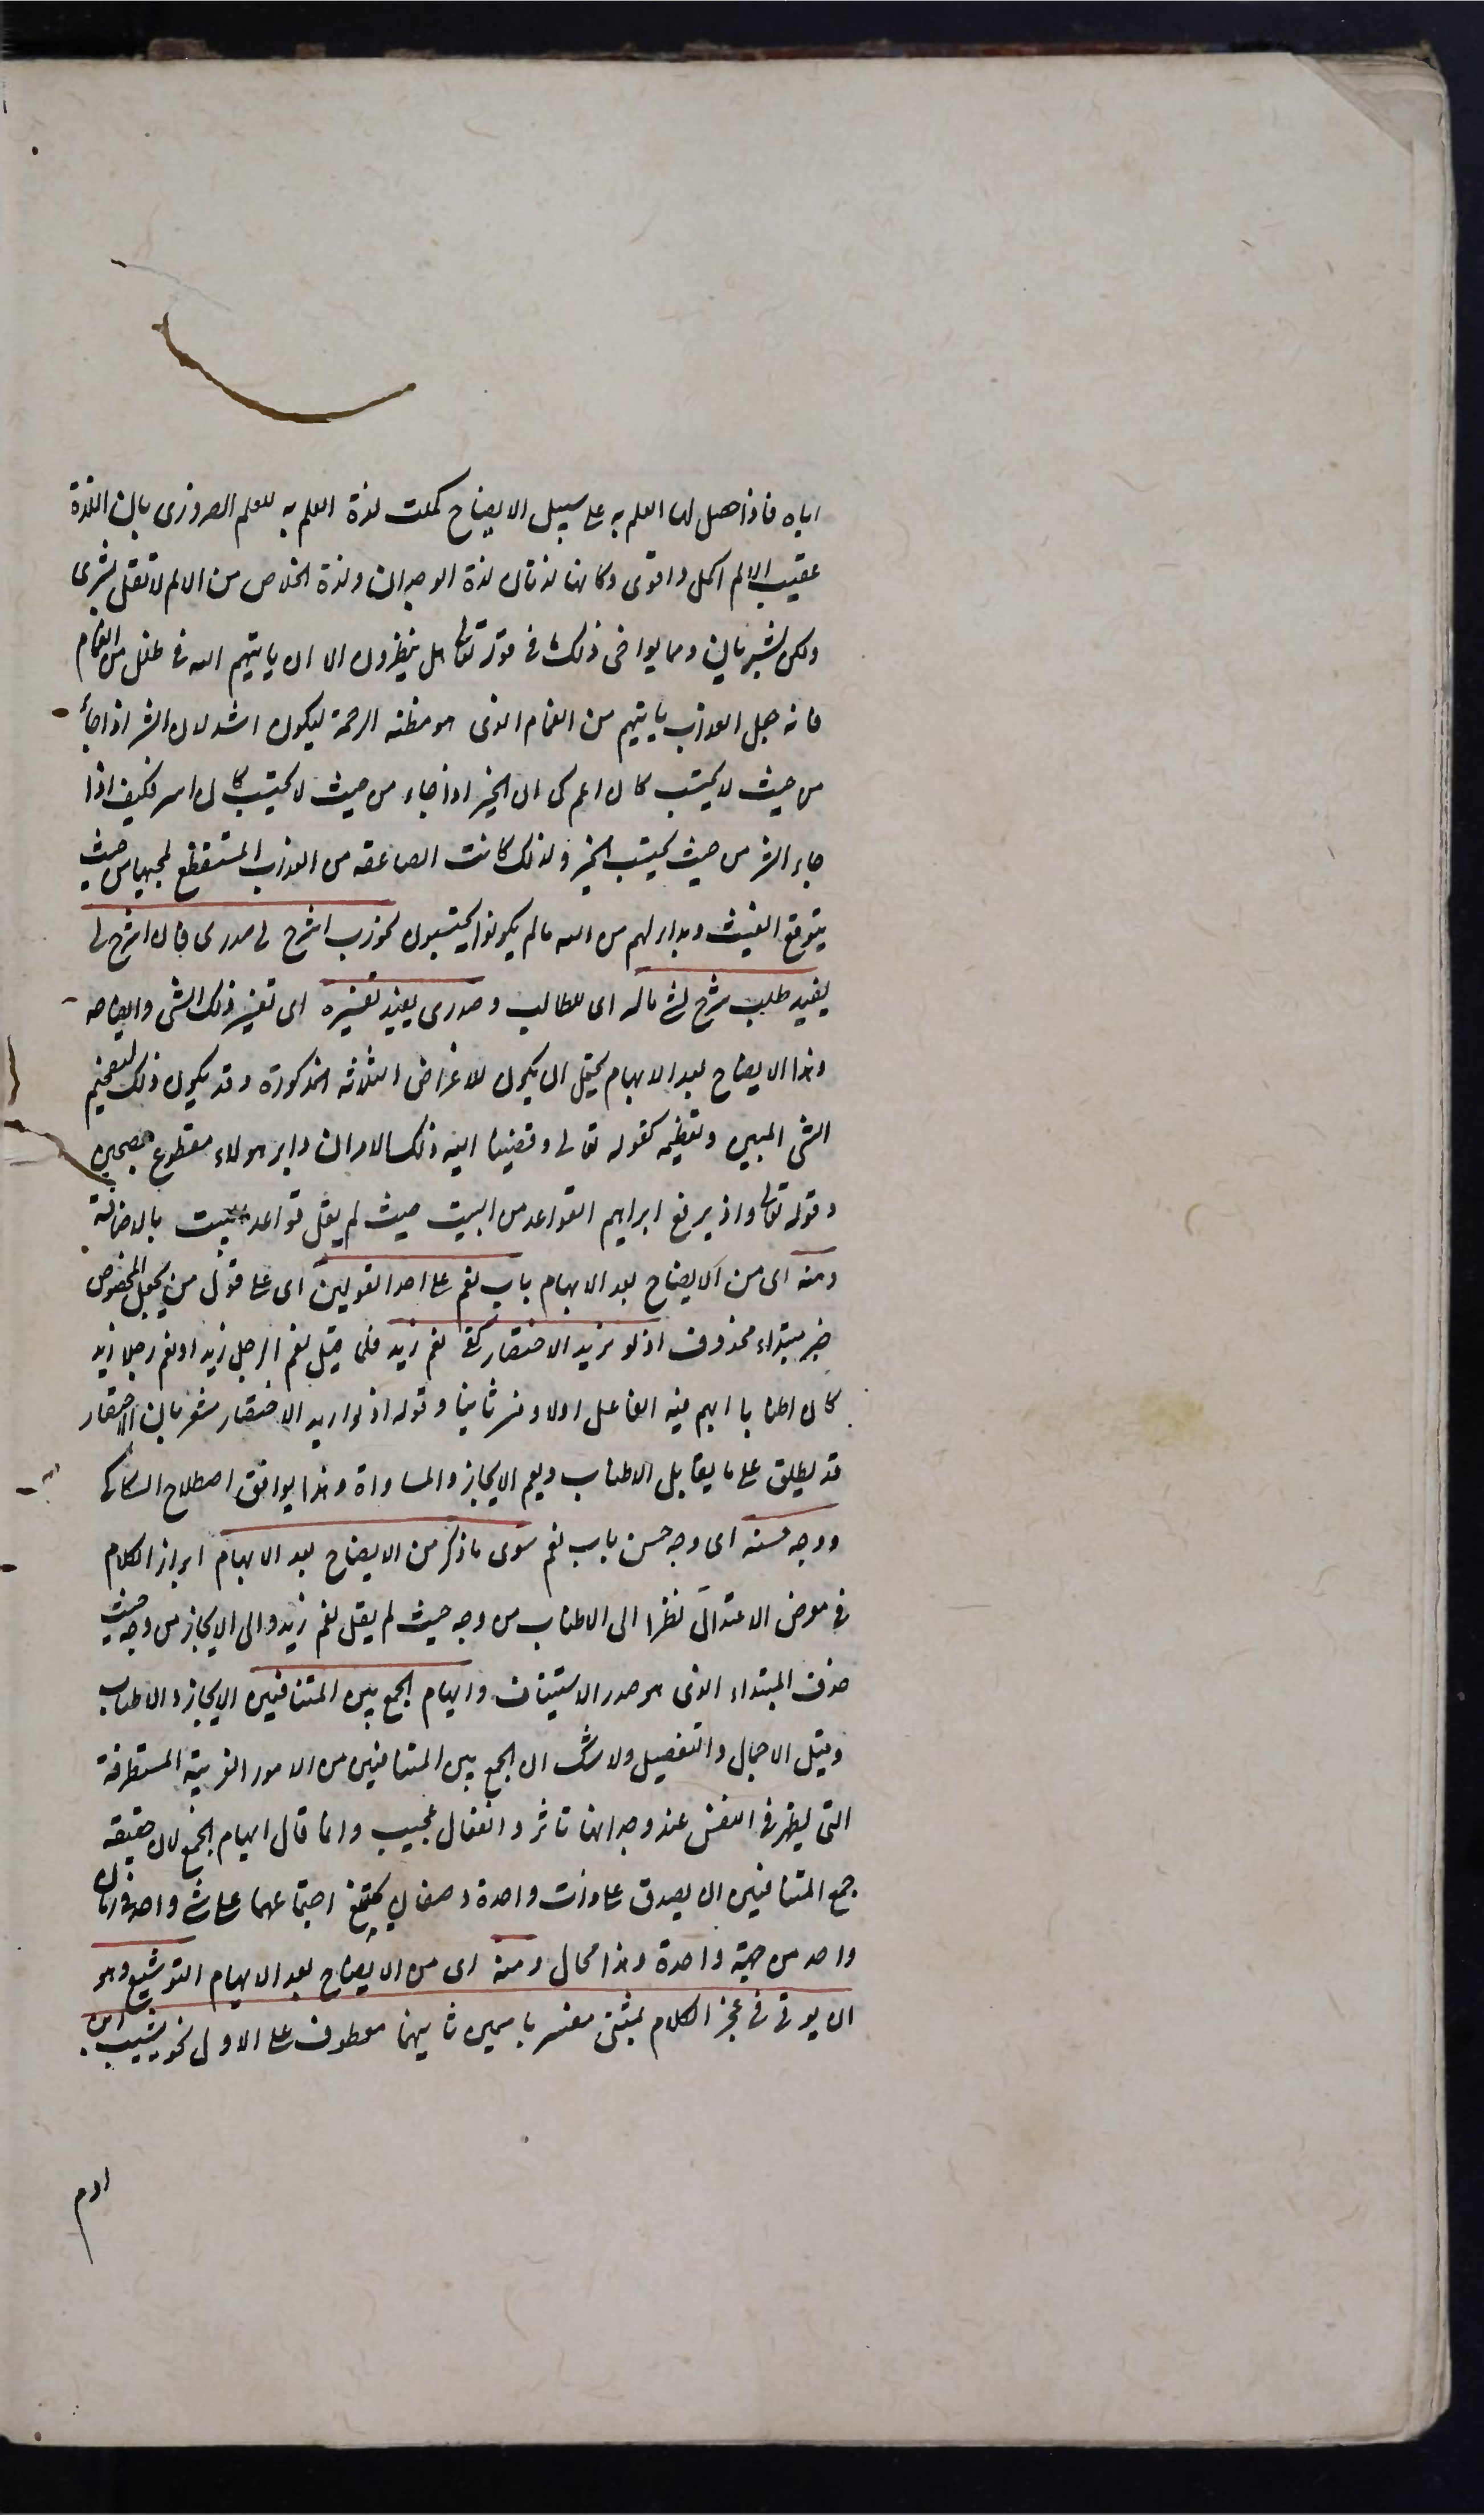 اياه فاذا حصل لها العلم به على سبيل الايضاح كملت لذة العلم به للعلم الضرورى بان اللذة
عقيب الالم اكمل واقوى وكانها لذتان لذة الوجدان ولذة الخلاص من الالم لا تقل بشرى
ولكن بشريان ومما يواخى ذلك فى قوله تعالى هل ينظرون الا ان ياتيهم الله فى ظلل من الغمام
فانه جعل العذاب ياتيهم من الغمام الذى هو مظنه الرحمة ليكون اشد لان الشر اذا جاء
من حيث لا يحتسب كان اعم كما ان الخير اذا جاء من حيث لا يحتسب كان اسر فكيف اذا
جاء الشر من حيث يحتسب الخير ولذلك كانت الصاعقه من العذاب المستفظع لمجيها من حيث
يتوقع الغيث وبدا لهم من الله ما لم يكونوا يحتسبون نحو رب اشرح لى صدرى فان اشرح لى
يفيد طلب شرح لشئ ما له اى للطالب وصدرى يفيد تفسيره اى تفسير ذلك الشى وايضاحه
وهذا الايضاح بعد الابهام يحتمل ان يكون للاغراض الثلاثه المذكورة وقد يكون ذلك لتفخيم
الشى المبين وتعظيمه كقوله تعالى وقضينا اليه ذلك الامر ان دابر هولاء مقطوع مصبحين
وقوله تعالى واذ يرفع ابراهيم القواعد من البيت حيث لم يقل قواعد البيت بالاضافة
ومنه اى من الايضاح بعد الابهام باب نعم على احد القولين اى على قول من يجعل المخصوص
خبر مبتداء محذوف اذ لو اريد الاختصار كفى نعم زيد فلما قيل نعم الرجل زيد او نعم رجلا زيد
كان اطنابا ابهم فيه الفاعل اولا وفسر ثانيا وقوله اذ لو اريد الاختصار مشعر بان الاختصار
قد يطلق على ما يقابل الاطناب ويعم الايجاز والمساواة وهذا يوافق اصطلاح السكاكى
ووجه حسنه اى وجه حسن باب نعم سوى ما ذكر من الايضاح بعد الابهام ابراز الكلام
فى معرض الاعتدال نظرا الى الاطناب من وجه حيث لم يقل نعم زيد والى الايجاز من وجه حيث
حذف المبتداء الذى هو صدر الاستيناف وايهام الجمع بين المتنافيين الايجاز والاطناب
وقيل الاجمال والتفصيل ولا شك ان الجمع بين المتنافيين من الامور الغريبة المستطرفة
التى يظهر فى النفس عند وجدانها تاثر وانفعال عجيب وانما قال ايهام الجمع لان حقيقه
جمع المتنافيين ان يصدق على ذات واحدة وصفان يمتنع اجتماعهما على شئ واحد فى زمان
واحد من جهة واحدة وهذا محال ومنه اى من الايضاح بعد الابهام التوشيع وهو
ان يوتى فى عجز الكلام بمثنى مفسر باسمين ثانيهما معطوف على الاول نحو يشيب ابن
ادم